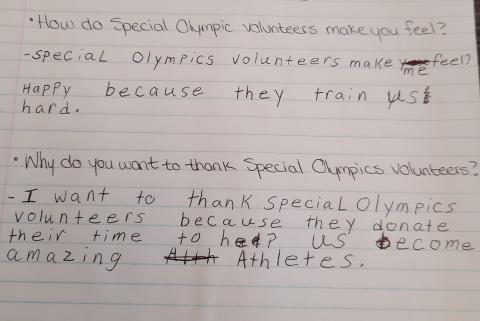 • How do Special Olympic volunteers make you feel?
- Special Olympics volunteers make me feel?
Happy because they train us
hard.
• Why do you want to thank Special Olympics volunteers?
- I want to thank special Olympics
volunteers because they donate
their time to help us become
amazing Athletes.